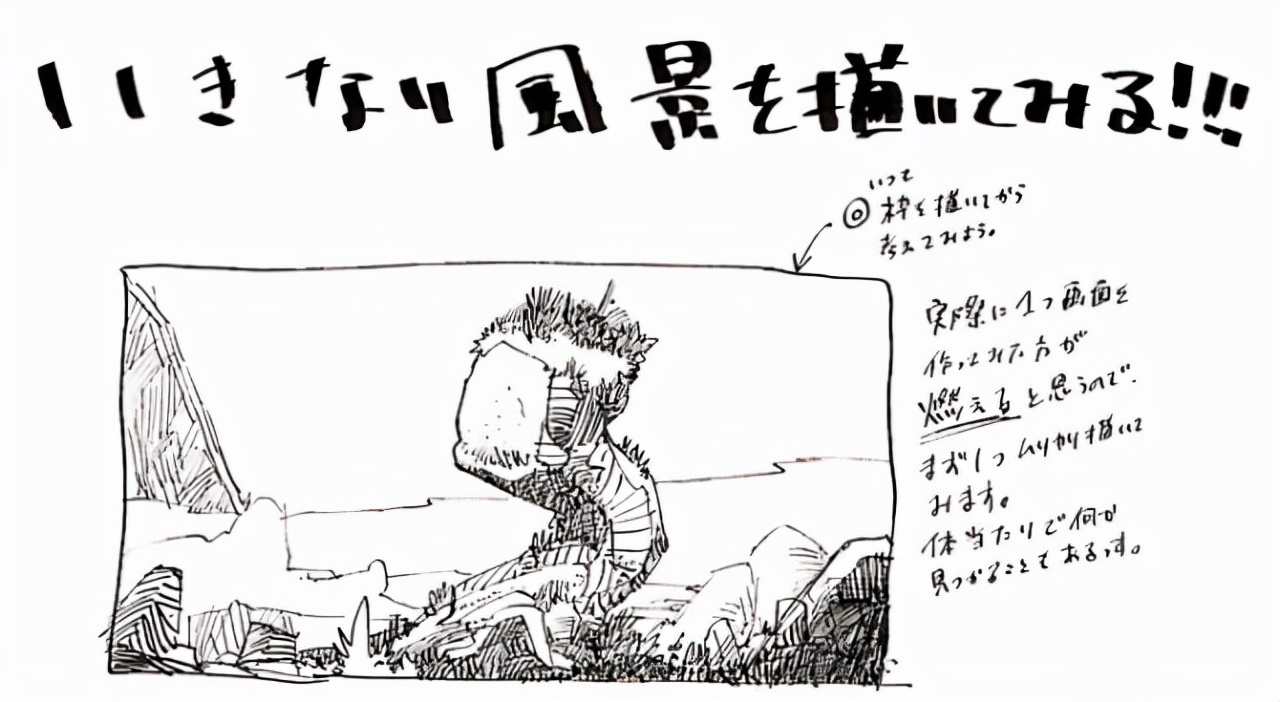 いきなり風景を描いてみる!!!
いつも
◎枠を描いてから
考えてみよう。
実際に1つ画面を
作ってみた方が
燃えると思うので、
まず1つムリヤリ描いて
みます。
体当たりで何か
見つかることもあるっす。